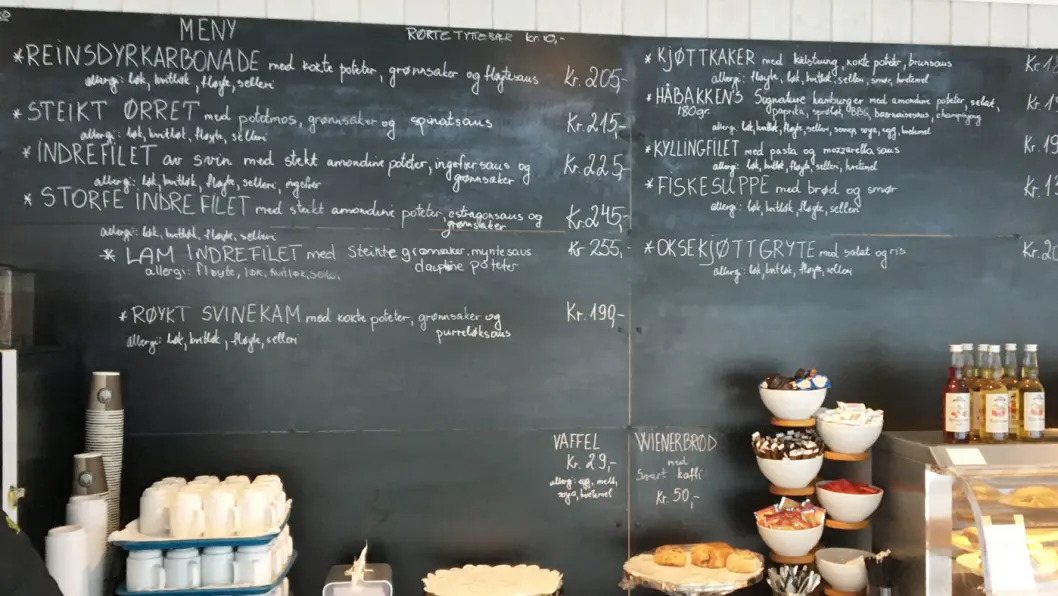 MENY
RØRTE TYTTEBÆR kr. 10,-
*REINSDYRKARBONADE med kokte poteter, grønnsaker og fløtesaus Kr. 205,-
allergi: løk, hvitløk, fløyte, selleri
*STEIKT ØRRET med potetmos, grønnsaker og spinatsaus Kr. 215,-
allergi: løk, hvitløk, fløyte, selleri
*INDREFILET av svin med stekt amondine poteter, ingefærsaus og Kr. 225,-
grønnsaker
allergi: løk, hvitløk, fløyte, selleri, ingefær
* STORFE INDREFILET med stekt amondine poteter, estragonsaus og Kr. 245,-
grønnsaker
allergi: løk, hvitløk, fløyte, selleri
* LAM INDREFILET med Steikte grønnsaker, myntesaus Kr 255,-
dauphine poteter
allergi: fløyte, løk, hvitløk, selleri
* RØYKT SVINEKAM med kokte poteter, grønnsaker og Kr. 190,-
purreløksaus
allergi: løk, hvitløk, fløyte, selleri
*KJØTTKAKER med kålstuing, kokte poteter, brunsaus Kr
allergi: fløyte, løk, hvitløk, selleri, smør, hvetemel
*HÅBAKKEN'S Signature hamburger med amondine poteter, salat, Kr.
180gr. paprika, sprøløk, BBQ, bearnaisesaus, champignong
allergi: løk, hvitløk, fløyte, selleri, sennep, soya, egg, hvetemel
*KYLLINGFILET med pasta og mozzarella saus Kr.
allergi: løk, hvitløk, fløyte, selleri, hvetemel
*FISKESUPPE med brød og smør Kr.
allergi: løk, hvitløk, fløyte, selleri
*OKSEKJØTTGRYTE med salat og ris Kr.
allergi: løk, hvitløk, fløyte, selleri
VAFFEL
Kr. 29,-
allergi: egg, melk,
soya, hvetemel
WIENERBRØD
med
Svart kaffi
Kr. 50,-